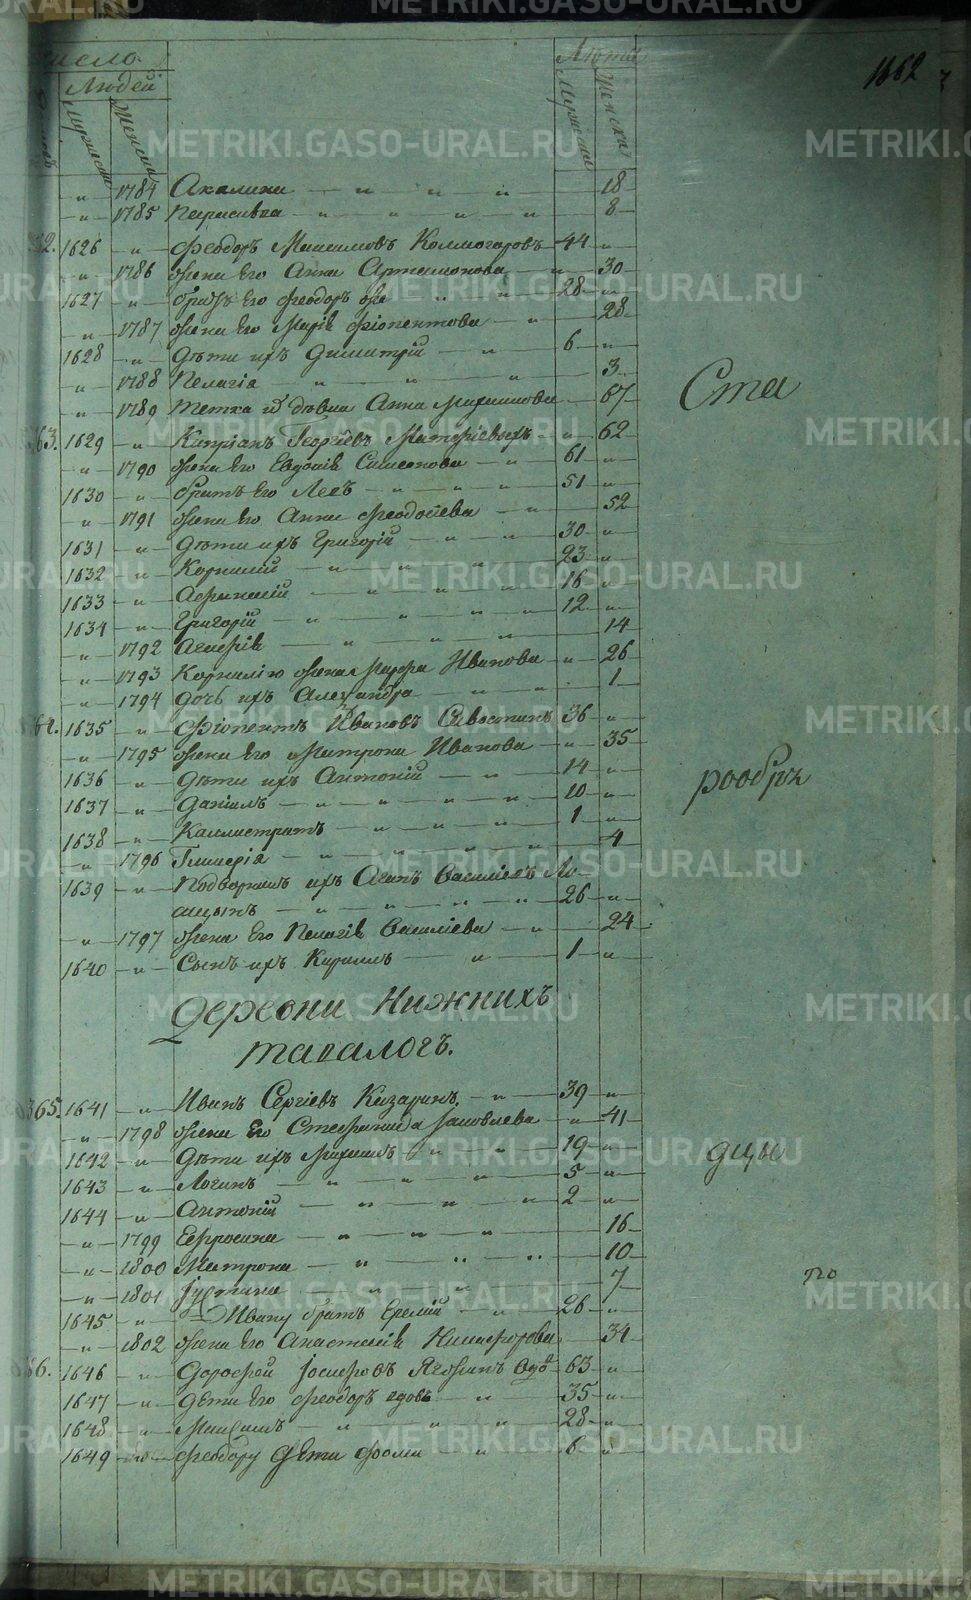 Число.
Людей
Мужеска
Женска
Лѣта
Мужеска
Женска
1662
" 1784 Акилина " " " 18
" 1785 Параскева " " " " 8
362. 1626 " Феодоръ Максимовъ Колмогоровъ 44 "
" 1786 жена Его Анна Артамонова " 30
1627 " братъ Его Феодоръ же " " 28 "
" 1787 жена Его Марія Фіопентова " 28
1628 " дѣти ихъ Димитрій " 6 "
" 1788 Пелагіа " " " 3
" 1789 тетка дѣвка Анна Максимова 67
363. 1629 " Кипріанъ Георгіевъ " 62
" 1790 жена Его Евдокія Симеонова 61 "
1630 " братъ Его Левъ " " " 51 "
" 1791 жена Его Анна Феодосіева " 52
1631 " дѣти ихъ Григорій " " 30 "
1632 " Корнилій " " " 23 "
1633 " Афанасій " " " " 16 "
1634 " Григорій " " " " 12 "
" 1792 " " " 14
" 1793 Корнилію жена Марфа Иванова " 26
" 1794 дочь ихъ Александра " " 1
364. 1635 " Фіопентъ Ивановъ 36 "
" 1795 жена Его Матрона Иванова " 35
1636 " дѣти ихъ Антоній " 14 "
1637 " Даніилъ " " " " 10 "
1638 " Каллистратъ " " " 1 "
" 1796 Гликерія " " " " 4
1639 " Подворникъ ихъ Василіевъ Ло-
" " " " 26 "
" 1797 жена Его Пелагія Василіева " 24
1640 " Сынъ ихъ Кириллъ " 1 "
Деревни Нижнихъ
тавологъ.
365. 1641 " Иванъ Сергіевъ Казаринъ. " 39 "
" 1798 жена Его Стефанида Іаковлева " 41
1642 " дѣти ихъ Михаилъ " " 19 "
1643 " Логинъ " " " " 5 "
1644 " Антоній " " " " 2 "
" 1799 Ефросинія " " " 16
" 1800 Матрона " " " 10
" 1801 Іустина " " 7
1645 " Ивану братъ " 26 "
" 1802 жена Его Анастасія Никифорова 34
366. 1646 " Дорофей Іосифовъ вдо 63 "
1647 " дѣти Его Феодоръ вдовъ " 35 "
1648 " Максимъ " " " 28 "
1649 " Феодору дѣти Фома " 6 "
Ста
рообря
дцы
тѣ
METRIKI.GASO-URAL.RU